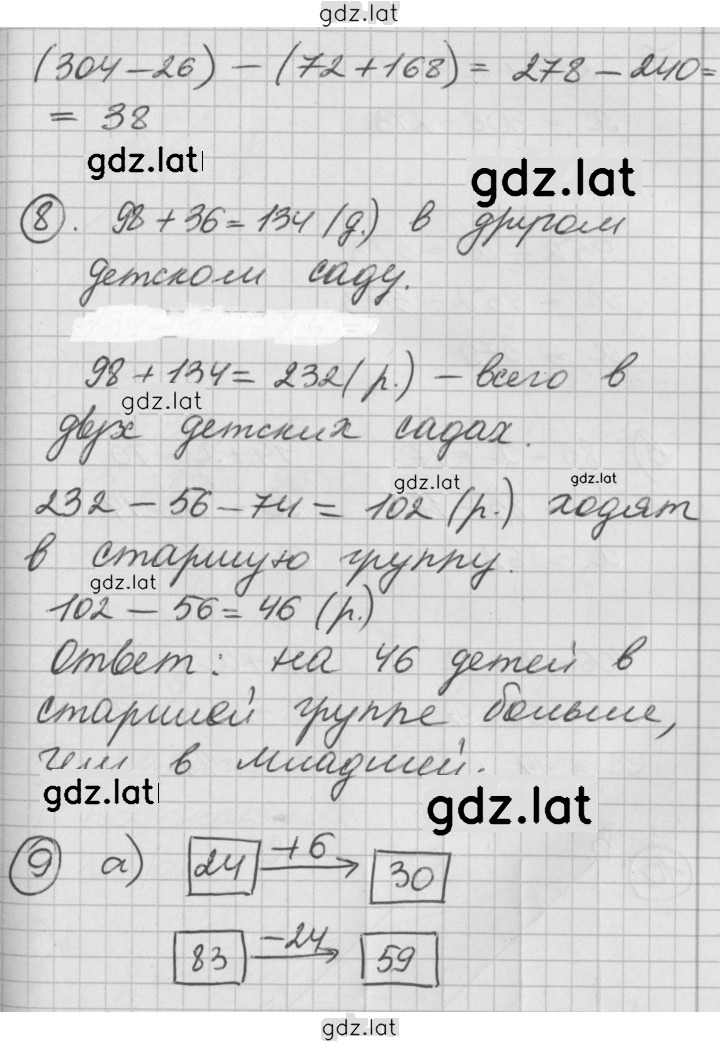 gdz.lat
(304 – 26) – (72 + 168) = 278 – 240 =
= 38
gdz.lat
gdz.lat
8. 98 + 36 = 134 (д.) в другом
детском саду.
98 + 134 = 232 (р.) – всего в
gdz.lat
двух детских садах.
gdz.lat
gdz.lat
232 – 56 – 74 = 102 (р.) ходят
в старшую группу.
gdz.lat
102 – 56 = 46 (р.)
Ответ: на 46 детей в
старшей группе больше,
чем в младшей.
gdz.lat
gdz.lat
9 а) 24 +6 30
83 –24 59
gdz.lat